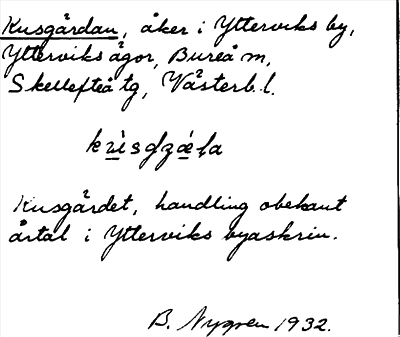 Kusgårdan, åker i Ytterviks by,
Ytterviks ägor, Bureå m,
Skellefteå tg, Västerb. l.
Kusgårdet, handling obekant
årtal i Ytterviks byaskrin.
B. Nygren 1932.